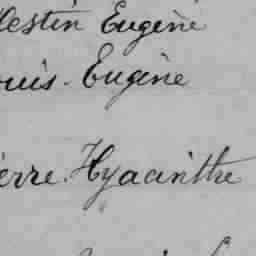 lestin Eugène
ouis. Eugène
erre. Hyacinthe